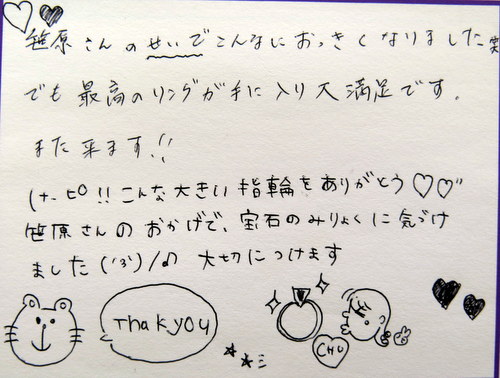 笹原さんのせいでこんなにおっきくなりました笑
でも最高のリングが手に入り大満足です。
また来ます!!
こんな大きい指輪をありがとう♡♡
笹原さんのおかげで、宝石のみりょくに気づけ
ました('3')/♪ 大切につけます
Thakyou
CHU